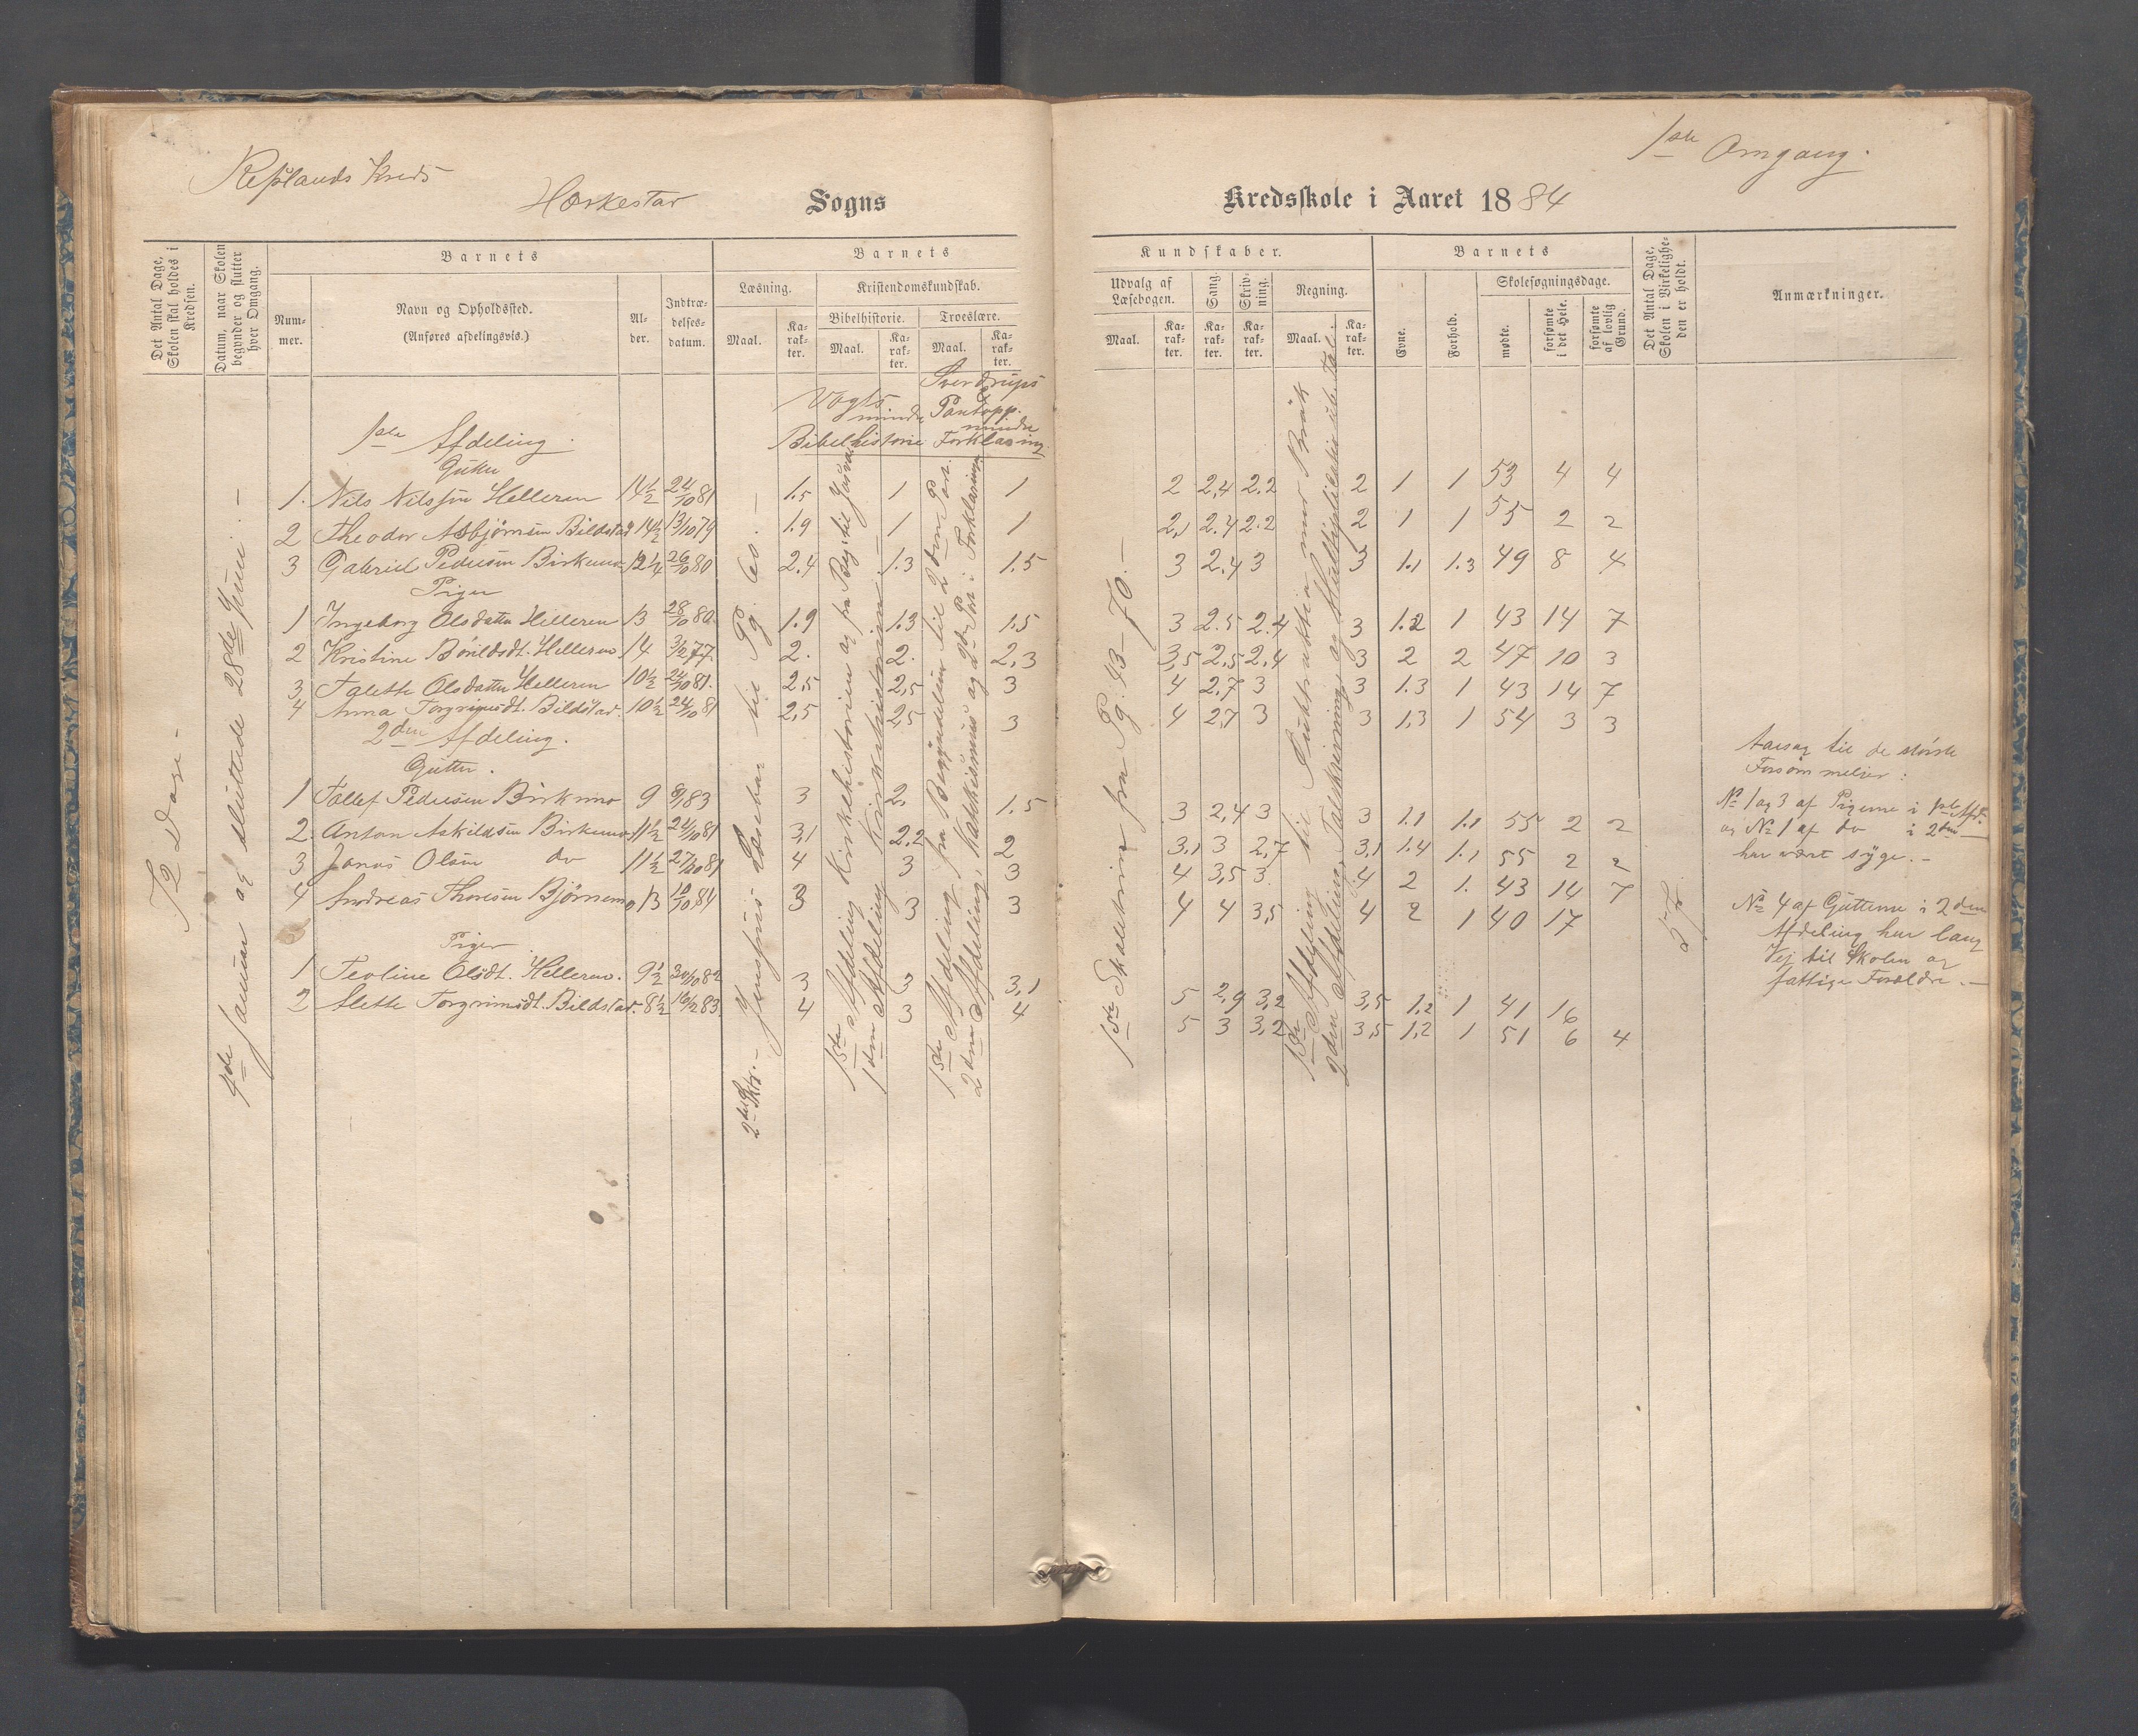 Kreds
1ste Omgang.
Sogns
Kredsskole i Aaret 1884
Det Antal Dage, Skolen skal holdes i Kredsen.
Datum, naar Skolen begynder og slutter hver Omgang.
Barnets
Barnets
Kundskaber.
Barnets
Det Antal Dage, Skolen i Virkeligheden er holdt.
Anmærkninger.
Nummer.
Navn og Opholdssted.
(Anføres afdelingsvis.)
Alder.
Indtrædelsesdatum.
Læsning.
Kristendomskundskab.
Udvalg af Læsebogen.
Sang.
Skrivning.
Regning.
Evne.
Forhold.
Skolesøgningsdage.
Bibelhistorie.
Troeslære.
Maal.
Karakter.
Maal.
Karakter.
Maal.
Karakter.
Maal.
Karakter.
Karakter.
Karakter.
Maal.
Karakter.
mødte.
forsømte i det Hele.
forsømte af lovlig Grund.
Vogts mindre Bibelhistorie
Sverdrups
mindre Forklaring
72 Dage -
og sluttede 28de Juni. -
1ste Afdeling.
Gutter
1. Nils Nilssen Helleren 14½ 24/10 81 1.5 1 1 2 2,4 2.2 2 1 1 53 4 4
2 Theodor Asbjørnsen Bildstad 14½ 13/10 79 1.9 1 1 2,1 2.4 2.2 2 1 1 55 2 2
3 Gabriel Pedersen Birkemo 12¼ 26/10 80 2.4 1.3 1.5 3 2,4 3 3 1.1 1.3 49 8 4
Piger
1 Ingeborg Olsdatter Helleren 13 28/10 80. 1.9 1.3 1.5 3 2.5 2.4 3 1.2 1 43 14 7
2 Kristine Helleren 14 3/12 77 2. 2. 2,3 3,5 2,5 2,4 3 2 2 47 10 3
3 Talette Olsdatter Helleren 10½ 24/10 81. 2,5 2,5 3 4 2,7 3 3 1.3 1 43 14 7
4 Anna Torgrimsdt. Bildstad. 10½ 24/10 81 2,5 2,5 3 4 2,7 3 3 1,3 1 54 3 3
2den Afdeling.
Gutter.
1 Tallef Pedersen Birkemo 9 83 3 2. 1.5 3 2,4 3 3 1.1 1.1 55 2 2
2. Anton Askildsen Birkemo 11½ 24/10 81 3,1 2.2 2 3.1 3 2,7 3,1 1.4 1.1 55 2 2
3 Jonas Olsen do 11½ 27/10 81 4 3 3 4 3,5 3. 4 2 1. 43 14 7
4 Andreas Thoresen Bjørnemo 13 3 3 3 4 4 3,5 4 2 1 40 17
Piger
1 Teoline Olsdt. Helleren. 9½ 82 3 3 3,1 5 2,9 3,2 3,5 1,2 1 41 16
2 Alette Torgrimsdt. Bildstad. 8½ 83. 4 3 4 5 3 3,2 3,5 1,2 1 51 6 4
Jensens Læsebog til Pg. 60. -
1ste Afdeling Kirkehistorien
1ste Afdeling fra Begyndelsen til 2den Part.
2den Afdeling, Katekismus og 2den Part i Forklaringen
1ste Skoletrin fra Pg. 43-70. -
1ste Afdeling til Subtraktion med Brøk
2den Afdeling, Talskrivning og Multiplikation Tal.
57
Aarsag til de største
Forsømmelser:
No 1 og 3 af Pigerne i 1ste Afd.
og No 1 af do i 2den
har været syge. -
No 4 af Gutterne i 2den
Afdeling har lang
Vej til Skolen og
fattige Forældre. -